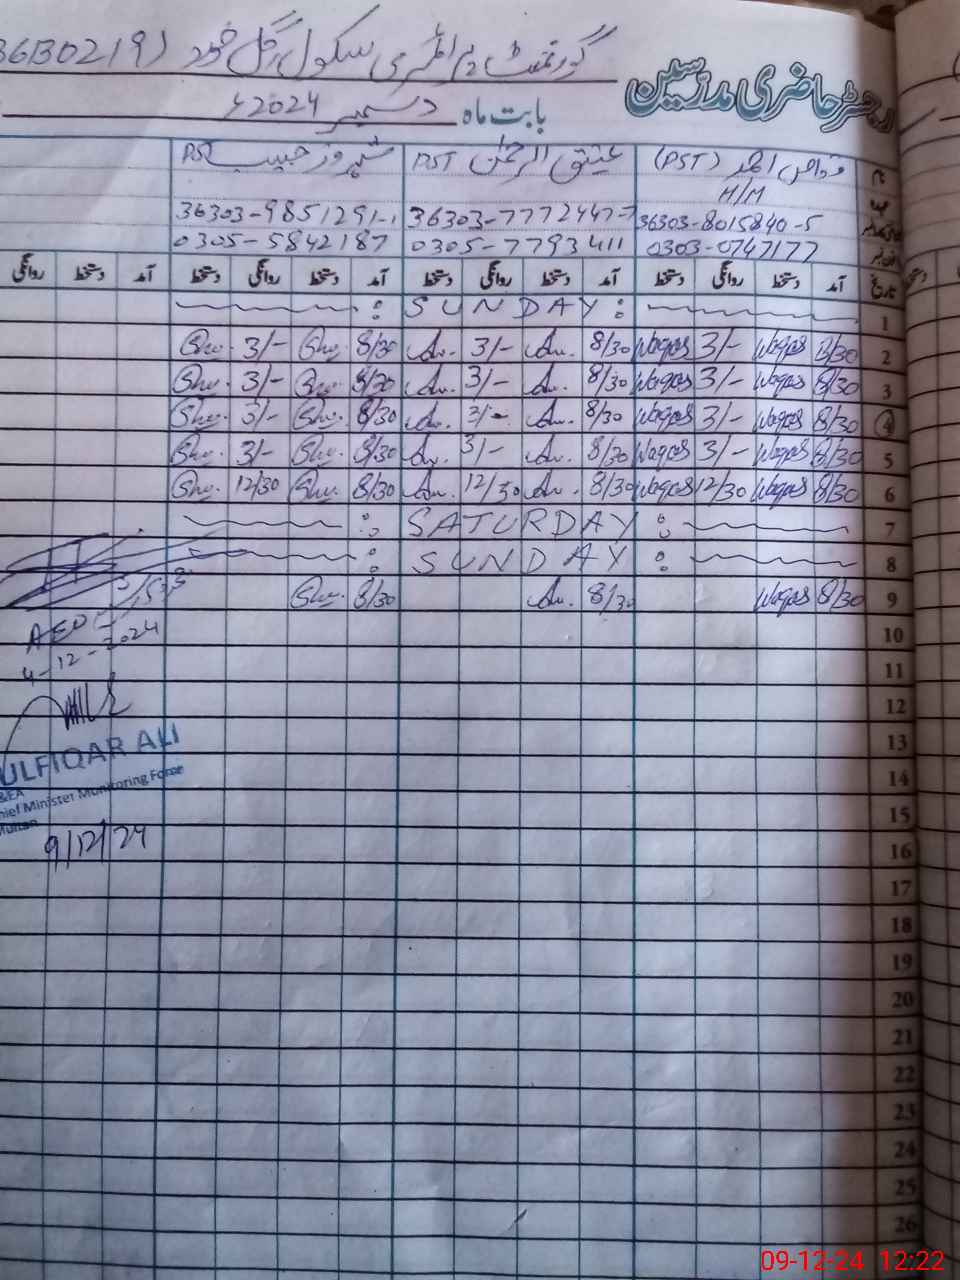 رجسٹر حاضری مدرسین
گورنمنٹ پرائمری سکول گل حمد (36130219
بابت ماہ دسمبر 2024ء
وقاص احمد (PST) عتیق الرحمٰن PST شہروز حبیب PST
H/M
36303-8015840-5 36303-7772447-7 36303-9851291-1
0303-0747177 0305-7793411 0305-5842187
تاریخ آمد دستخط روانگی دستخط آمد دستخط روانگی دستخط آمد دستخط روانگی دستخط آمد دستخط روانگی
1 : SUNDAY :
2 8/30 Waqas 3/- Waqas 8/30 Aw. 3/- Aw. 8/30 She. 3/- She.
3 8/30 Waqas 3/- Waqas 8/30 Aw. 3/- Aw. 8/30 She. 3/- She.
4 8/30 Waqas 3/- Waqas 8/30 Aw. 3/- Aw. 8/30 She. 3/- She.
5 8/30 Waqas 3/- Waqas 8/30 Aw. 3/- Aw. 8/30 She. 3/- She.
6 8/30 Waqas 12/30 Waqas 8/30 Aw. 12/30 Aw. 8/30 She. 12/30 She.
7 : SATURDAY :
8 : SUNDAY :
9 8/30 Waqas 8/30 Aw. 8/30 She.
10
11
12
13
14
15
16
17
18
19
20
21
22
23
24
25
26
AEO
4-12-2024
ULFIQAR ALI
&EA
hief Minister Monitoring Force
Multan
9/12/24
09-12-24 12:22